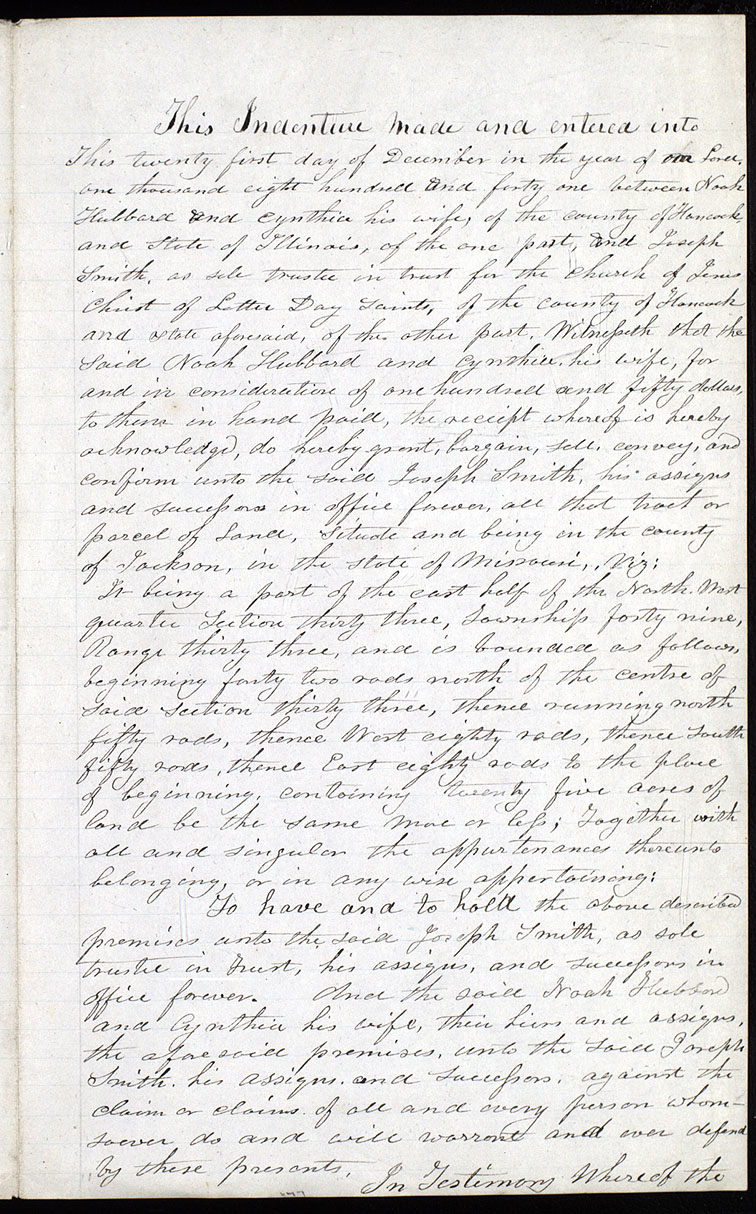 This Indenture made and entered into
This twenty first day of December in the year of our Lord,
one thousand eight hundred and forty one between Noah
Hubbard and Cynthia his wife, of the county of Hancock
and State of Illinois, of the one part, and Joseph
Smith, as sole trustee in trust for the Church of Jesus
Christ of Latter Day Saints, of the county of Hancock
and state aforesaid, of the other part, Witnesseth that the
said Noah Hubbard and Cynthia, his wife, for
and in consideration of one hundred and fifty dollars,
to them in hand paid, the receipt whereof is hereby
acknowledged, do hereby grant, bargain, sell, convey, and
confirm unto the said Joseph Smith, his assigns
and successors in office forever, all that tract or
parcel of Land, Situde and being in the county
of Jackson, in the state of Missouri,, Viz:
It being a part of the east half of the North West
quarter Section thirty three, Township forty nine,
Range thirty three, and is bounded as follows,
beginning forty two rods north of the centre of
said section thirty three, thence running north
fifty rods, thence West eighty rods, thence South
fifty rods, thence East eighty rods to the place
of beginning, containing twenty five acres of
land be the same more or less; Together with
all and singular the appurtenances thereunto
belonging, or in any wise appertaining:
To have and to hold the above described
premises unto the said Joseph Smith, as sole
trustee in trust, his assigns, and successors in
office forever. And the said Noah Hubbard
and Cynthia his wife, their hiers and assigns,
the aforesaid premises, unto the said Joseph
Smith. his assigns. and successors. against the
claim or claims of all and every person whom-
soever do and will warrant and ever defend
by these presents.
In Testimony Whereof the